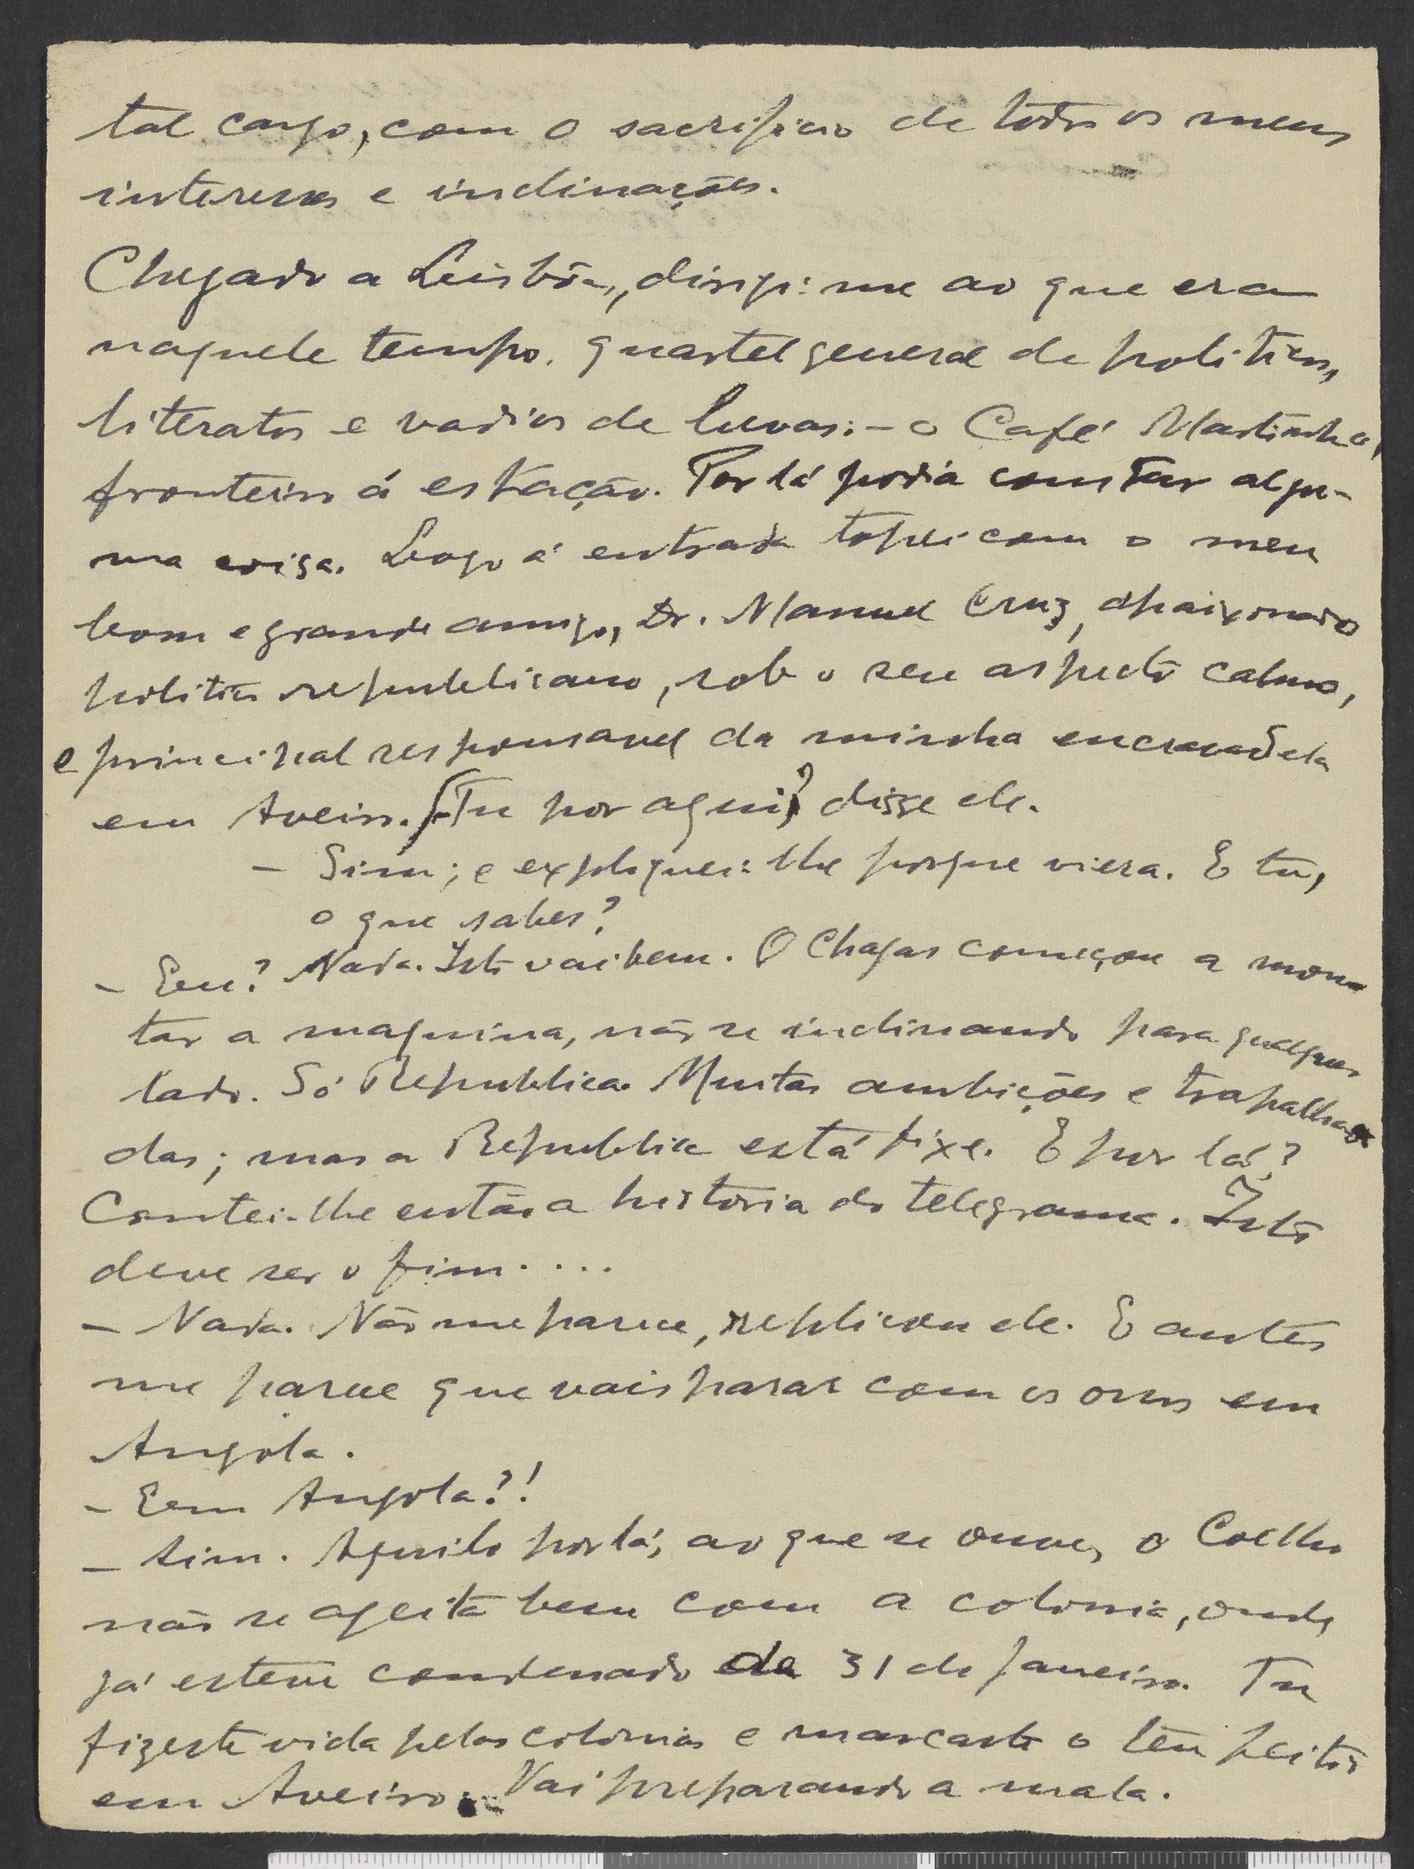 tal cargo, com o sacrificio de todos os meus
interesses e inclinações.
Chegado a Lisbôa, dirigi-me ao que era
naquele tempo quartel general de politicos,
literatos e vadios de luvas: - o Café Martinho,
fronteiro á estação. Por lá podia constar algu-
ma coisa. Logo á entrada topei com o meu
bom e grande amigo, Dr. Manuel Cruz, apaixonado
politico republicano, sob o seu aspecto calmo,
e principal responsavel da minha encravadela
em Aveiro. [- Tu por aqui? disse ele.
- Sim; e expliquei-lhe porque viera. E tu,
o que sabes?
- Eu? Nada. Isto vai bem. O Chagas começou a mon-
tar a maquina, não se inclinando para qualquer
lado. Só Republica. Muitas ambições e trapalha-
das; mas a Republica está fixe. E por lá?
Contei-lhe então a historia do telegrama. Isto
deve ser o fim....
- Nada. Não me parece, replicou ele. E antes
me parece que vais parar com os ossos em
Angola.
- Eem Angola?!
- Sim. Aquilo por lá, ao que se ouve, o Coelho
não se ageita bem com a colonia, onde
já esteve condenado de 31 de Janeiro. Tu
fizeste vida pelas colonias e marcaste o teu feitio
em Aveiro. Vai preparando a mala.